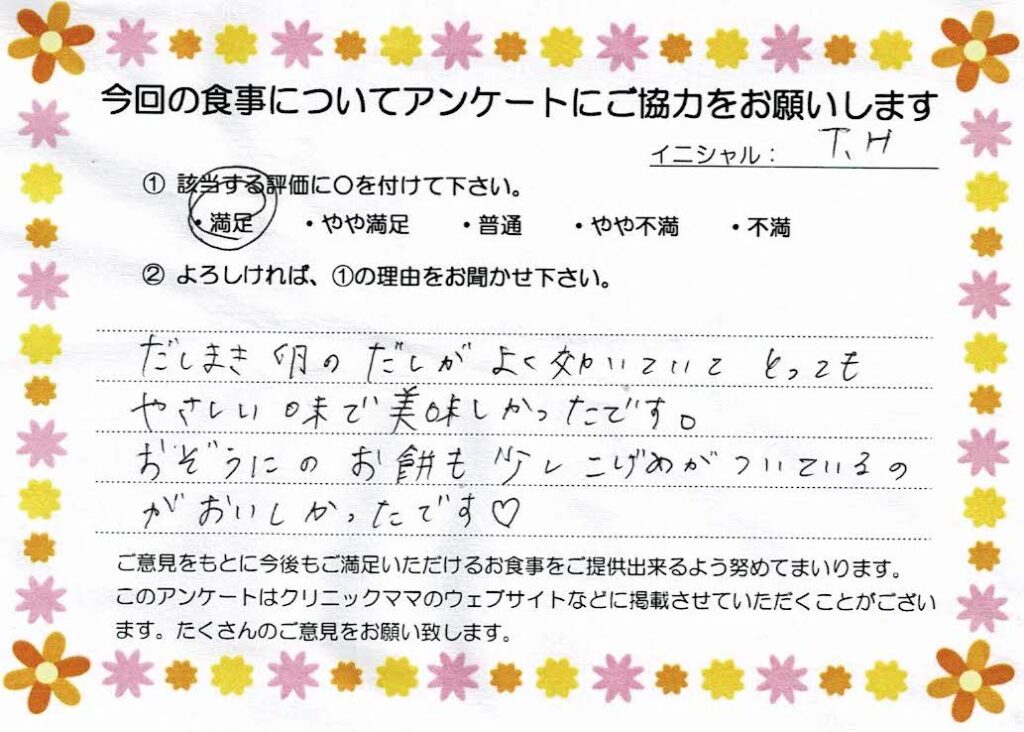 今回の食事についてアンケートにご協力をお願いします
イニシャル： T、H
① 該当する評価に○を付けて下さい。
・満足 ・やや満足 ・普通 ・やや不満 ・不満
② よろしければ、①の理由をお聞かせ下さい。
だしまき卵のだしがよく効いていてとっても
やさしい味で美味しかったです。
おぞうにのお餅も少しこげめがついているの
がおいしかったです♡
ご意見をもとに今後もご満足いただけるお食事をご提供出来るよう努めてまいります。
このアンケートはクリニックママのウェブサイトなどに掲載させていただくことがござい
ます。たくさんのご意見をお願い致します。